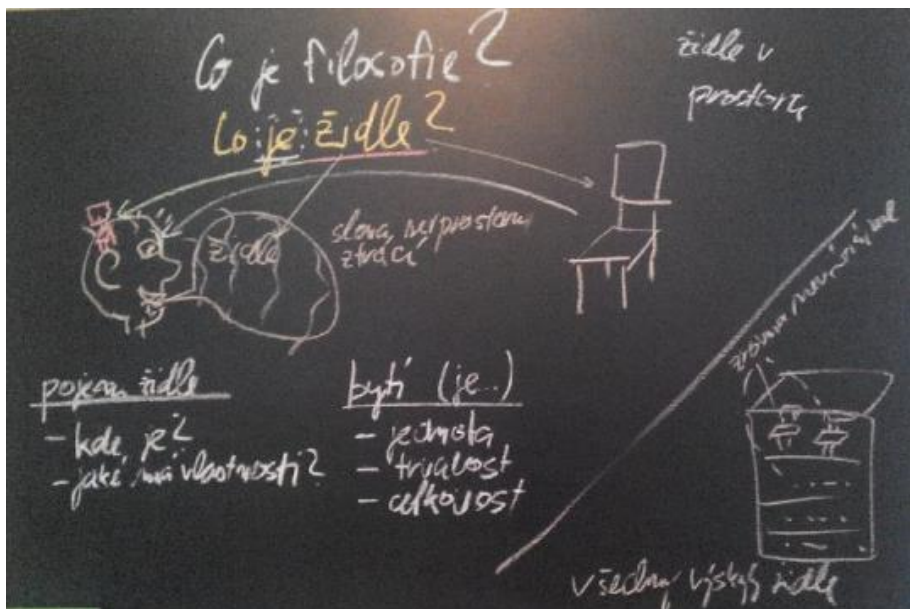 Co je filosofie?
Co je židle?
židle v
prostoru
židle
slova se v prostoru
ztrácí
pojem židle
- kde je?
- jaké má vlastnosti?
bytí (je..)
- jednota
- trvalost
- celkovost
všechny výskyty židle